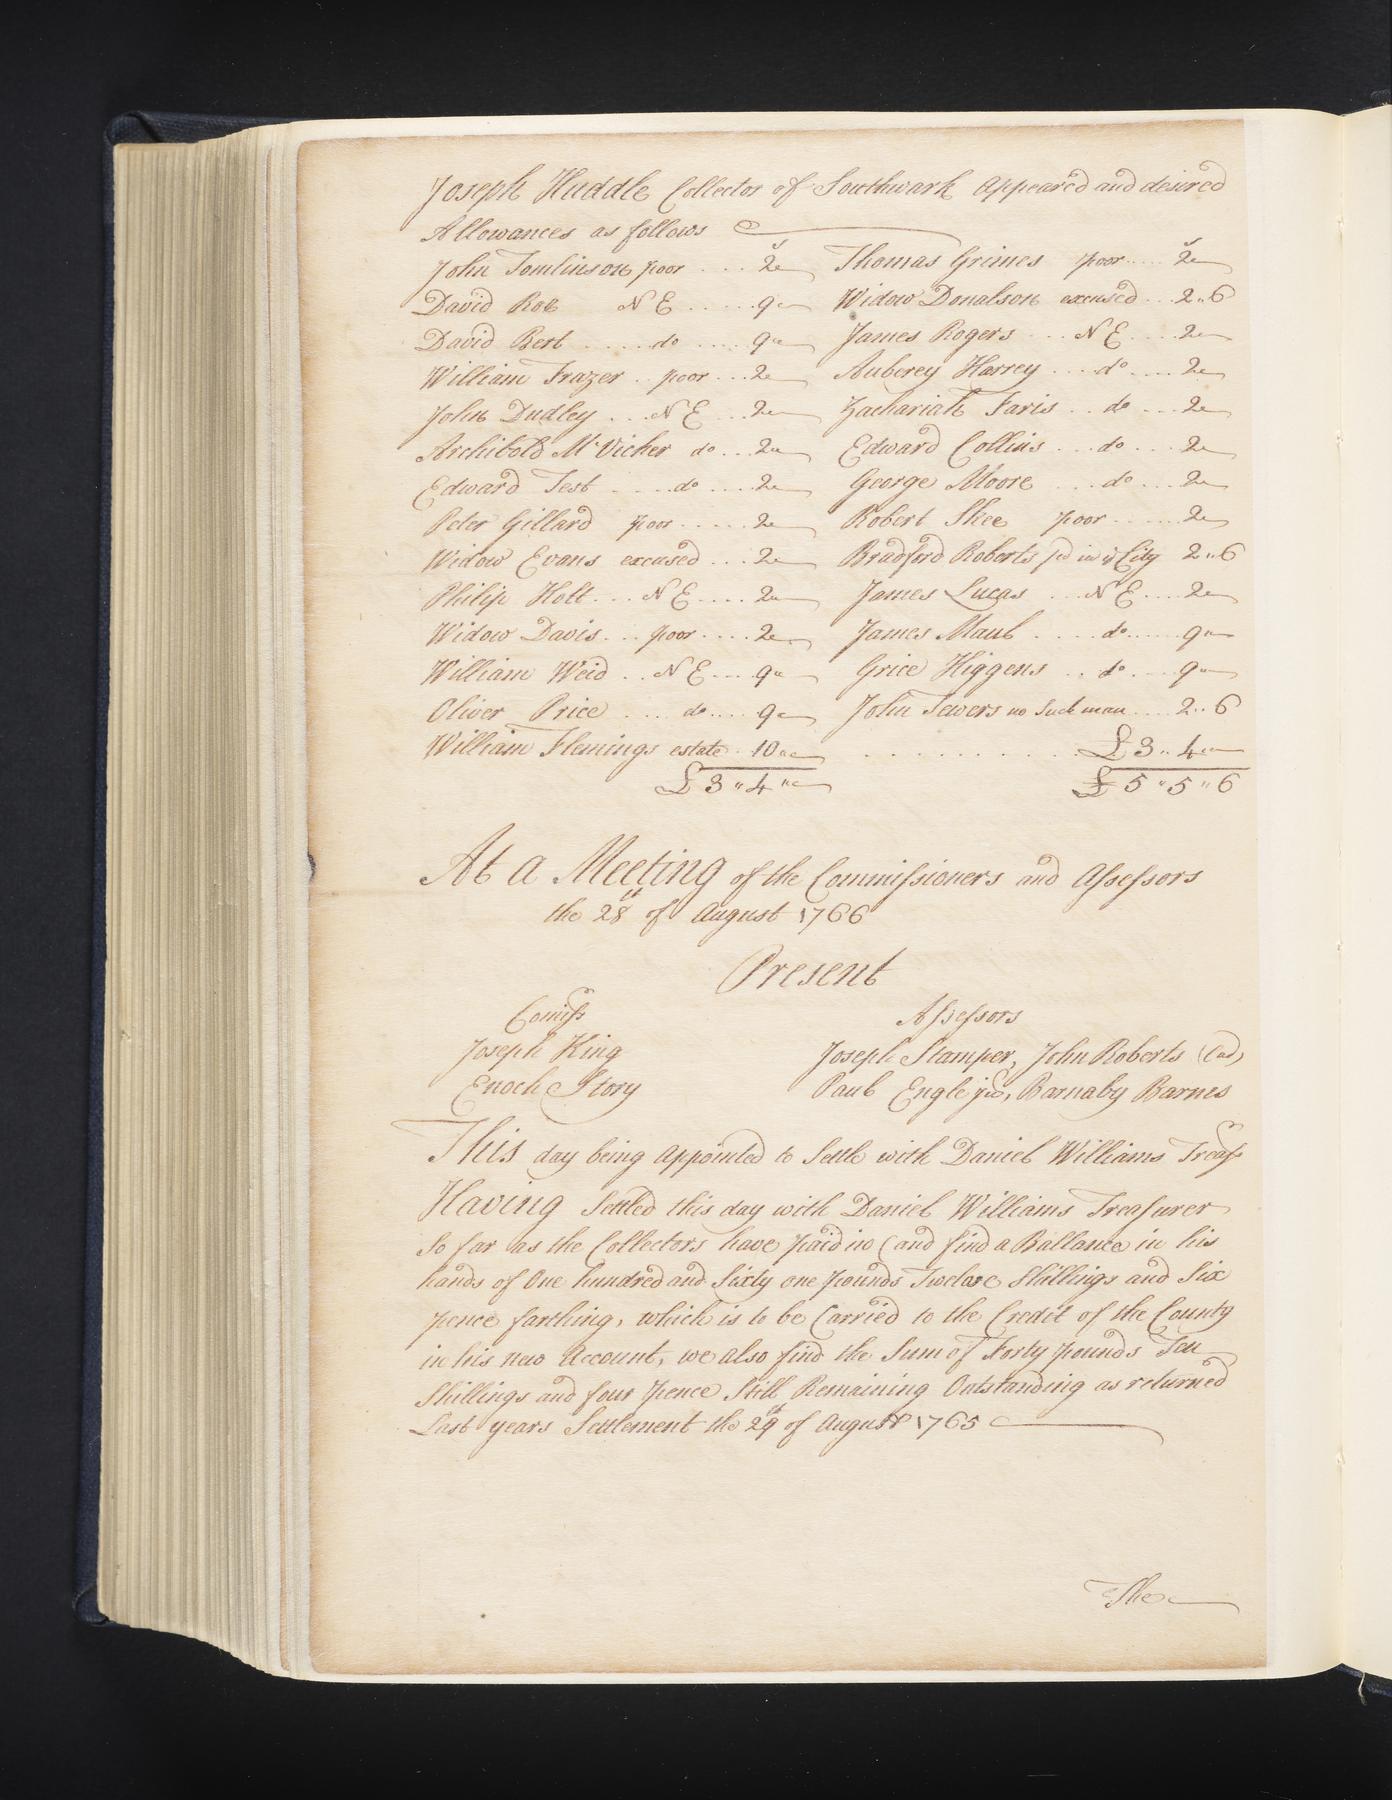 Joseph Huddle Collector of Southwark Appeared and desired
Allowances as follows
John Tomlinson poor .... 2 s
David Rob N E ..... 9 "
David Bert ..... do ..... 9 "
William Frazer .. poor ... 2 "
John Dudley ... N E ... 2 "
Archibold McVicker do ... 2 "
Edward Test .... do .... 2 "
Peter Gillard poor ..... 2 "
Widow Evans excused ... 2 "
Philip Holt ... N E .... 2 "
Widow Davis ... poor .... 2 "
William Weid .. N E .... 9 "
Oliver Price .... do .... 9 "
William Flemings estate .. 10 "
£ 3 " 4 "
Thomas Grimes poor ..... 2 s
Widow Donalson excused ... 2 " 6
James Rogers ... N E .... 2 "
Auberey Harrey .... do .... 2 "
Zachariah Faris .. do ... 2 "
Edward Collins ... do ... 2 "
George Moore ... do ... 2 "
Robert Skee poor ...... 2 "
Bradford Roberts pd in ye City 2 " 6
James Lucas ... N E .... 2 "
James Maul .... do ..... 9 "
Grice Higgens .. do .... 9 "
John Tewers no Such man .... 2 " 6
£ 3 " 4 "
£ 5 " 5 " 6
At a Meeting of the Commissioners and Assessors
the 28th of August 1766
Present
Comiss Assessors
Joseph King Joseph Stamper, John Roberts
Enoch Story Paul Engle junr, Barnaby Barnes
This day being Appointed to Settle with Daniel Williams Treasr
Having Settled this day with Daniel Williams Treasurer
So far as the Collectors have paid in (and find a Ballance in his
hands of One hundred and Sixty one pounds Twelve Shillings and Six
pence farthing, which is to be Carried to the Credit of the County
in his new Account, we also find the Sum of Forty pounds Ten
Shillings and four pence Still Remaining Outstanding as returned
Last years Settlement the 29th of August 1765
The